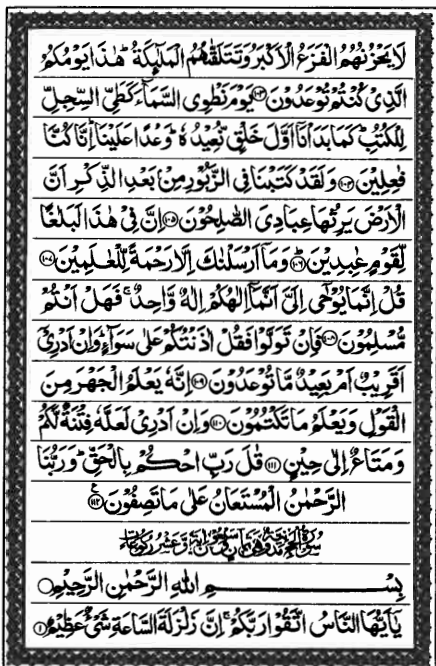 لَا يَحْزُنُهُمُ الْفَزَعُ الْاَكْبَرُ وَتَتَلَقّٰىهُمُ الْمَلٰٓئِكَةُ ؕ هٰذَا يَوْمُكُمُ
الَّذِىْ كُنْتُمْ تُوْعَدُوْنَ ﴿۱۰۳﴾ يَوْمَ نَطْوِى السَّمَآءَ كَطَىِّ السِّجِلِّ
لِلْكُتُبِ ؕ كَمَا بَدَاْنَاۤ اَوَّلَ خَلْقٍ نُّعِيْدُهٗ ؕ وَعْدًا عَلَيْنَا ؕ اِنَّا كُنَّا
فٰعِلِيْنَ ﴿۱۰۴﴾ وَلَقَدْ كَتَبْنَا فِى الزَّبُوْرِ مِنْۢ بَعْدِ الذِّكْرِ اَنَّ
الْاَرْضَ يَرِثُهَا عِبَادِىَ الصّٰلِحُوْنَ ﴿۱۰۵﴾ اِنَّ فِىْ هٰذَا لَبَلٰغًا
لِّقَوْمٍ عٰبِدِيْنَ ﴿۱۰۶﴾ وَمَاۤ اَرْسَلْنٰكَ اِلَّا رَحْمَةً لِّلْعٰلَمِيْنَ ﴿۱۰۷﴾
قُلْ اِنَّمَا يُوْحٰۤى اِلَىَّ اَنَّمَاۤ اِلٰهُكُمْ اِلٰهٌ وَّاحِدٌ ۚ فَهَلْ اَنْتُمْ
مُّسْلِمُوْنَ ﴿۱۰۸﴾ فَاِنْ تَوَلَّوْا فَقُلْ اٰذَنْتُكُمْ عَلٰى سَوَآءٍ ؕ وَاِنْ اَدْرِىْۤ
اَقَرِيْبٌ اَمْ بَعِيْدٌ مَّا تُوْعَدُوْنَ ﴿۱۰۹﴾ اِنَّهٗ يَعْلَمُ الْجَهْرَ مِنَ
الْقَوْلِ وَيَعْلَمُ مَا تَكْتُمُوْنَ ﴿۱۱۰﴾ وَاِنْ اَدْرِىْ لَعَلَّهٗ فِتْنَةٌ لَّكُمْ
وَمَتَاعٌ اِلٰى حِيْنٍ ﴿۱۱۱﴾ قٰلَ رَبِّ احْكُمْ بِالْحَقِّ ؕ وَرَبُّنَا
الرَّحْمٰنُ الْمُسْتَعَانُ عَلٰى مَا تَصِفُوْنَ ﴿۱۱۲﴾ ع
بِسْمِ اللّٰهِ الرَّحْمٰنِ الرَّحِيْمِ
يٰۤاَيُّهَا النَّاسُ اتَّقُوْا رَبَّكُمْ ۚ اِنَّ زَلْزَلَةَ السَّاعَةِ شَىْءٌ عَظِيْمٌ ﴿۱﴾